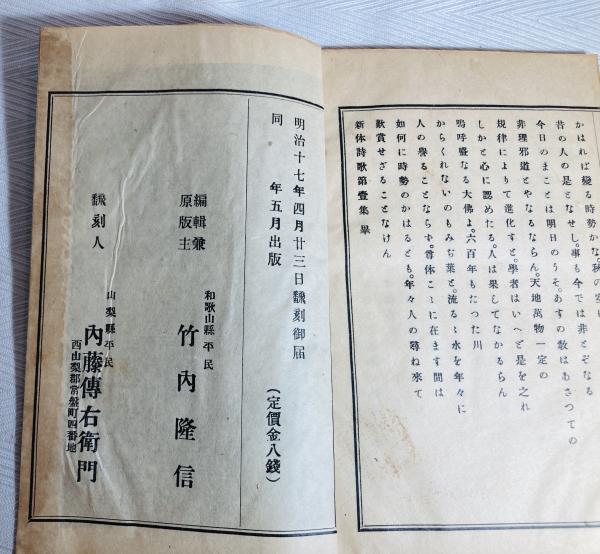 かはれば變る時勢かな。秋の空
昔の人の是となせし。事も今では非とぞなる
今日のまことは明日のうそ。あすの教はあさつての
非理邪道とやなるならん。天地萬物一定の
規律によりて進化すと。學者はいへど是を之れ
しかと心に認めたる。人は果してなかるらん
嗚呼盛なる大佛よ。六百年もたつた川
からくれないのもみぢ葉と。流るゝ水を年々に
人の譽ることならず。尊体こゝに在ます間は
如何に時勢のかはるとも。年々人の尋ね來て
歎賞せざることなけん
新体詩歌第壹集 畢
明治十七年四月廿三日飜刻御届
同 年五月出版
(定價金八錢)
編輯兼
原版主
和歌山縣平民
竹內隆信
飜刻人
山梨縣平民
內藤傳右衛門
西山梨郡常盤町四番地